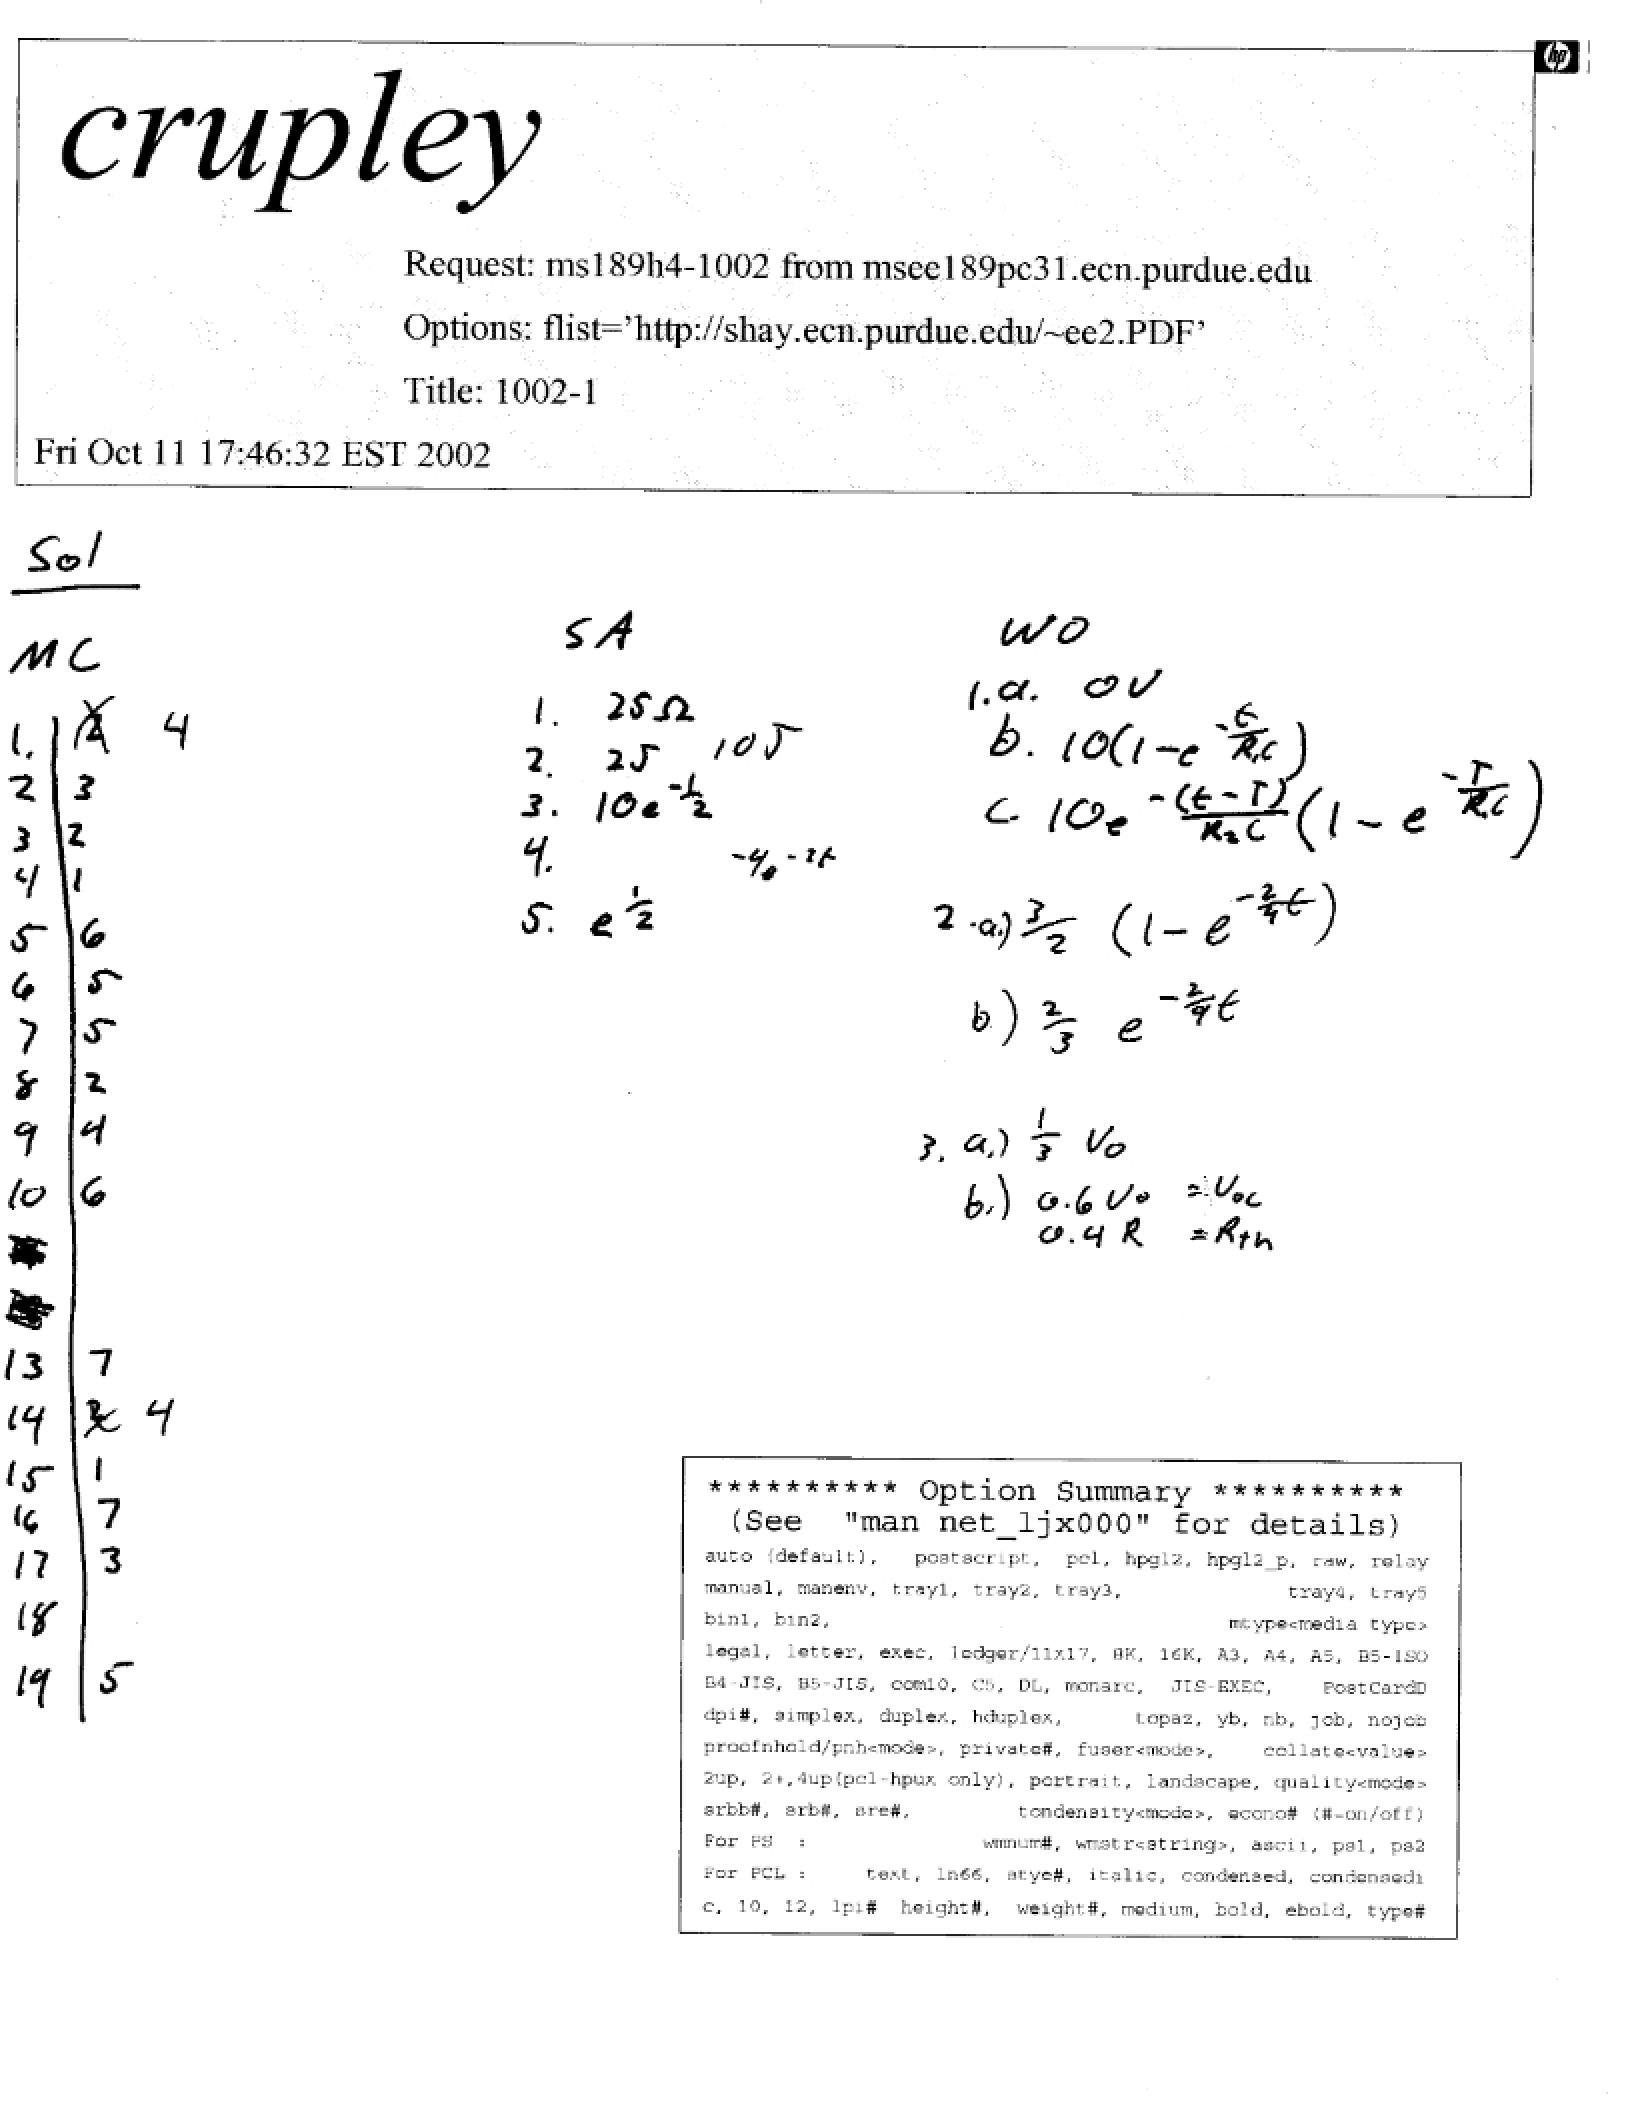 hp
crupley
Request: ms189h4-1002 from msee189pc31.ecn.purdue.edu
Options: flist='http://shay.ecn.purdue.edu/~ee2.PDF'
Title: 1002-1
Fri Oct 11 17:46:32 EST 2002
Sol
MC
1. 4
2 3
3 2
4 1
5 6
6 5
7 5
8 2
9 4
10 6
13 7
14 4
15 1
16 7
17 3
18
19 5
SA
1. 25Ω
2. 25 10J
3. 10e^{-1/2}
4.
5. e^{1/2}
WO
1.a. 0V
b. 10(1-e^{-t/R_1C})
c. 10e^{-(t-T)/R_2C}(1-e^{-T/R_1C})
2.a.) 3/2 (1-e^{-2/9 t})
b.) 2/3 e^{-2/9 t}
3. a.) 1/3 V0
b.) 0.6 V0 = Voc
0.4 R = Rth
********** Option Summary **********
(See "man net_ljx000" for details)
auto (default), postscript, pcl, hpgl2, hpgl2_p, raw, relay
manual, manenv, tray1, tray2, tray3, tray4, tray5
bin1, bin2, mtype<media type>
legal, letter, exec, ledger/11x17, 8K, 16K, A3, A4, A5, B5-ISO
B4-JIS, B5-JIS, com10, C5, DL, monarc, JIS-EXEC, PostCardD
dpi#, simplex, duplex, hduplex, topaz, yb, nb, job, nojob
proofnhold/pnh<mode>, private#, fuser<mode>, collate<value>
2up, 2+,4up(pcl-hpux only), portrait, landscape, quality<mode>
srbb#, srb#, sre#, tondensity<mode>, econo# (#-on/off)
For PS : wmnum#, wmstr<string>, ascii, ps1, ps2
For PCL : text, ln66, stye#, italic, condensed, condensedi
c, 10, 12, lpi# height#, weight#, medium, bold, ebold, type#